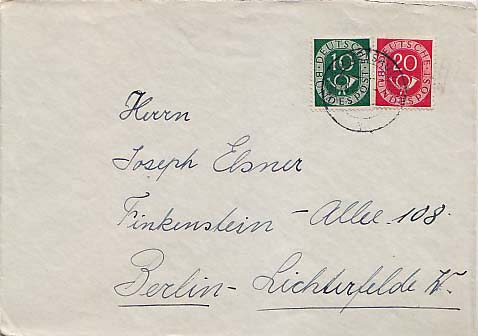 DEUTSCHE BUNDESPOST 10
DEUTSCHE BUNDESPOST 20
Herrn
Joseph Elsner
Finkenstein - Allee 108.
Berlin - Lichterfelde W.